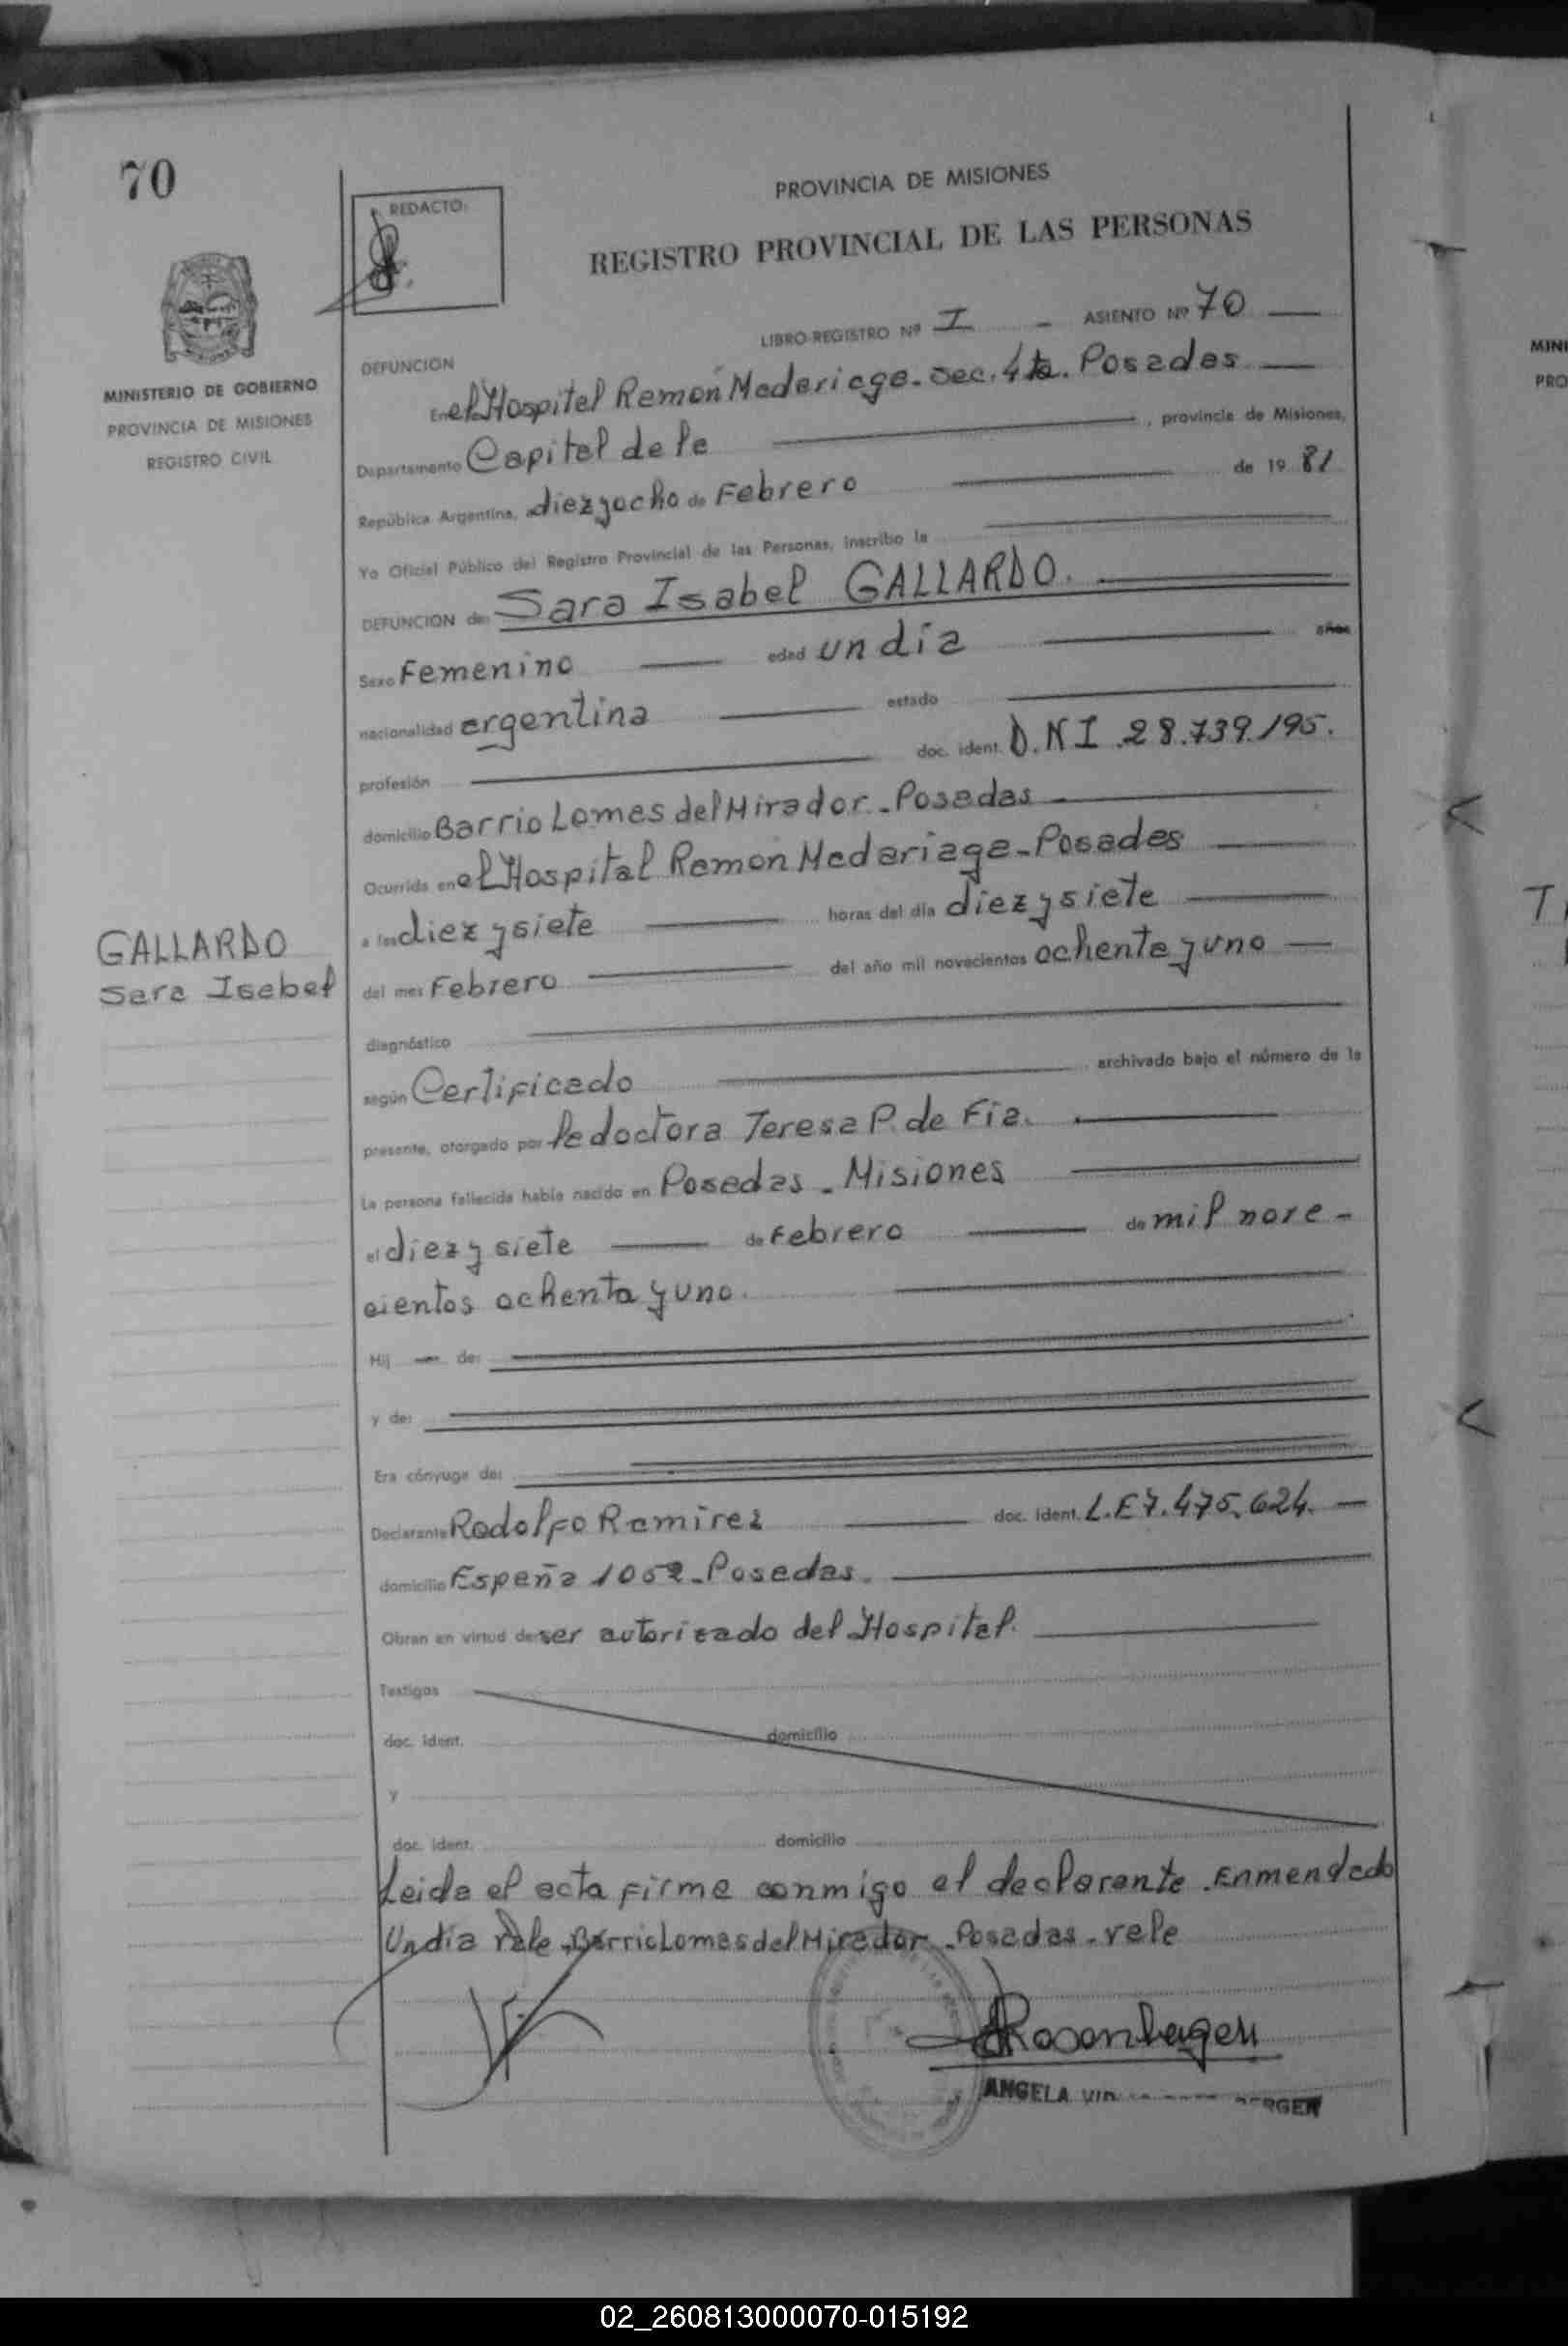 70
REDACTO:
PROVINCIA DE MISIONES
REGISTRO PROVINCIAL DE LAS PERSONAS
MINISTERIO DE GOBIERNO
PROVINCIA DE MISIONES
REGISTRO CIVIL
LIBRO-REGISTRO Nº I - ASIENTO Nº 70
DEFUNCION
En el Hospital Ramón Madariaga-sec. 4ta. Posadas
Departamento Capital de la , provincia de Misiones,
República Argentina, a diez y ocho de Febrero de 19 81
Yo Oficial Público del Registro Provincial de las Personas, inscribo la
DEFUNCION de: Sara Isabel GALLARDO.
Sexo Femenino edad un día años
nacionalidad argentina estado
profesión doc. ident. D.N I .28.739.195.
domicilio Barrio Lomas del Mirador.-Posadas
Ocurrida en el Hospital Ramón Madariaga-Posadas
a las diez y siete horas del día diez y siete
GALLARDO
Sara Isabel
del mes Febrero del año mil novecientos ochenta y uno
diagnóstico
según Certificado archivado bajo el número de la
presente, otorgado por la doctora Teresa P. de Fia.
La persona fallecida había nacido en Posadas - Misiones
el diez y siete de Febrero de mil nove-
cientos ochenta y uno.
Hij de:
y de:
Era cónyuge de:
Declarante Rodolfo Ramirez doc. ident. L.E 7.475.624.
domicilio España 1052-Posadas.
Obran en virtud de: ser autorizado del Hospital.
Testigos
doc. ident. domicilio
y
doc. ident. domicilio
Leida el acta firma conmigo el declarante .Enmendado
Un día Vale .Barrio Lomas del Mirador -Posadas - vale
ARosenbagen
ANGELA
MINI
PRO
02_260813000070-015192